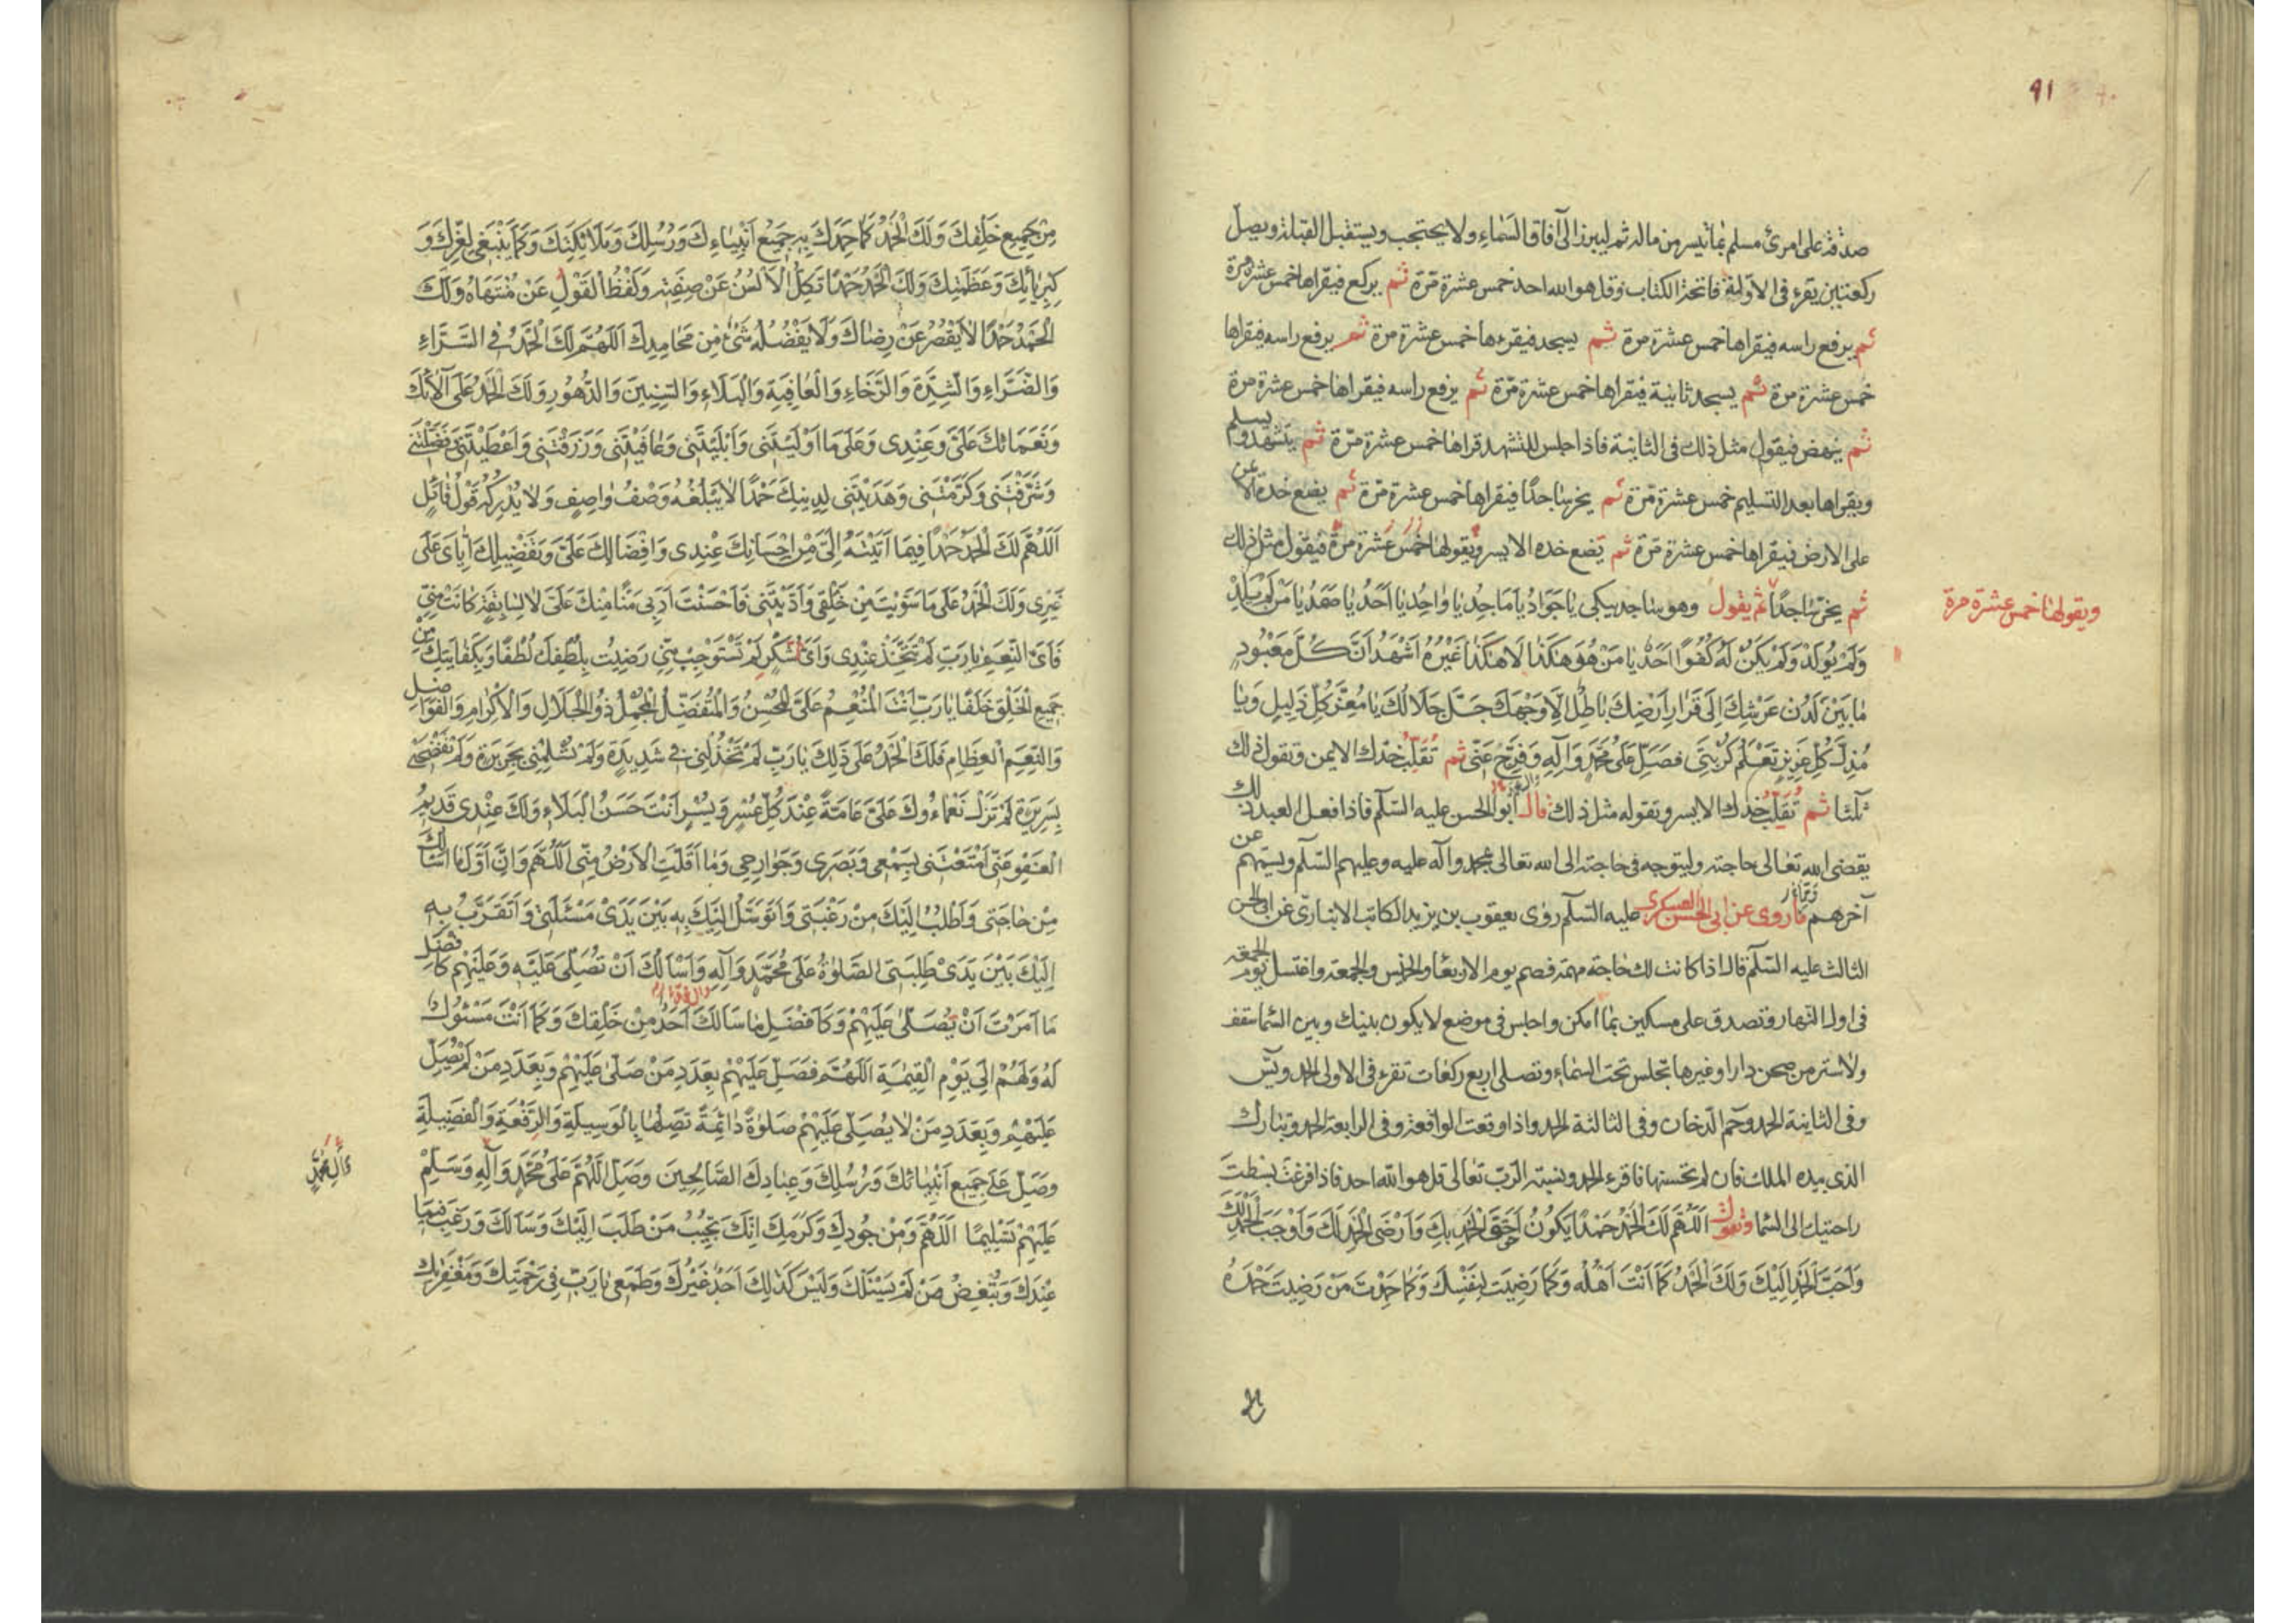 ٩١
صدقة على امرئ مسلم بما تيسر من ماله ثم ليبرز الى آفاق السماء ولا يحتجب ويستقبل القبلة ويصل
ركعتين يقرء فى الاولة فاتحة الكتاب وقل هو الله احد خمس عشرة مرّة ثم يركع فيقراها خمس عشرة مرة
ثم يرفع راسه فيقراها خمس عشرة مرة ثم يسجد فيقرءها خمس عشرة مرة ثم يرفع راسه فيقراها
خمس عشرة مرة ثم يسجد ثانية فيقراها خمس عشرة مرّة ثم يرفع راسه فيقراها خمس عشرة مرة
ثم ينهض فيقول مثل ذلك فى الثانية فاذا جلس للتشهد قراها خمس عشرة مرّة ثم يتشهد ويسلم
ويقراها بعد التسليم خمس عشرة مرّة ثم يخر ساجدًا فيقراها خمس عشرة مرّة ثم يضع خده الايمن
على الارض فيقراها خمس عشرة مرّة ثم يضع خده الايسر ويقولها خمس عشرة مرة فيقول مثل ذلك
ثم يخرّ ساجدًا ثم يقول وهو ساجد يبكى يَا جَوَادُ يَا مَاجِدُ يَا وَاحِدُ يَا اَحَدُ يَا صَمَدُ يَا مَنْ لَمْ يَلِدْ
ويقولها خمس عشرة مرة
وَلَمْ يُولَدْ وَلَمْ يَكُنْ لَهُ كُفُوًا اَحَدٌ يَا مَنْ هُوَ هَكَذَا لَا هَكَذَا غَيْرُهُ اَشْهَدُ اَنَّ كُلَّ مَعْبُودٍ
مَا بَيْنَ لَدُنْ عَرْشِكَ اِلَى قَرَارِ اَرْضِكَ بَاطِلٌ اِلَّا وَجْهَكَ جَلَّ جَلَالُكَ يَا مُعِزَّ كُلِّ ذَلِيلٍ وَيَا
مُذِلَّ كُلِّ عَزِيزٍ تَعْلَمُ كُرْبَتِى فَصَلِّ عَلَى مُحَمَّدٍ وَآلِهِ وَفَرِّجْ عَنِّى ثم تُقَلِّبُ خدك الايمن وتقول ذلك
ثلثا ثم تُقَلِّبُ خدك الايسر وتقوله مثل ذلك قال ابو الحسن عليه السّلم فاذا فعل العبد ذلك
يقضى الله تعالى حاجته وليتوجه فى حاجته الى الله تعالى بمحمد وآله عليه وعليهم السّلم ويسميهم عن
آخرهم ما روى عن ابى الحسن العسكرى عليه السّلم روى يعقوب بن يزيد الكاتب الانبارىّ عن ابى الحسن
الثالث عليه السّلم قال اذا كانت لك حاجة مهمّة فصم يوم الاربعاء والخميس والجمعة واغتسل يوم الجمعة
فى اول النهار وتصدق على مسكين بما امكن واجلس فى موضع لا يكون بينك وبين السّماء سقف
ولا ستر من صحن دار او غيرها تجلس تحت السّماء وتصلى اربع ركعات تقرء فى الاولى الحمد ويس
وفى الثانية الحمد وحم الدّخان وفى الثالثة الحمد واذا وقعت الواقعة وفى الرابعة الحمد وتبارك
الذى بيده الملك فان لم تحسنها فاقرء الحمد ونسبة الرّب تعالى قل هو الله احد فاذا فرغت بسطت
راحتيك الى السّماء وتقول اَللّهُمَّ لَكَ الْحَمْدُ حَمْدًا يَكُونُ اَحَقَّ الْحَمْدِ بِكَ وَاَرْضَى الْحَمْدِ لَكَ وَاَوْجَبَ الْحَمْدِ لَكَ
وَاَحَبَّ الْحَمْدِ اِلَيْكَ وَلَكَ الْحَمْدُ كَمَا اَنْتَ اَهْلُهُ وَكَمَا رَضِيتَ لِنَفْسِكَ وَكَمَا حَمِدَكَ مَنْ رَضِيتَ حَمْدَهُ
مِنْ جَمِيعِ خَلْقِكَ وَلَكَ الْحَمْدُ كَمَا حَمِدَكَ بِهِ جَمِيعُ اَنْبِيَاءِكَ وَرُسُلِكَ وَمَلَائِكَتِكَ وَكَمَا يَنْبَغِى لِعِزِّكَ وَ
كِبْرِيَائِكَ وَعَظَمَتِكَ وَلَكَ الْحَمْدُ حَمْدًا تَكِلُّ الْاَلْسُنُ عَنْ صِفَتِهِ وَيَقِفُ الْقَوْلُ عَنْ مُنْتَهَاهُ وَلَكَ
الْحَمْدُ حَمْدًا لَا يَقْصُرُ عَنْ رِضَاكَ وَلَا يَفْضُلُهُ شَىْءٌ مِنْ مَحَامِدِكَ اَللّهُمَّ لَكَ الْحَمْدُ فِى السَّرَّاءِ
وَالضَّرَّاءِ وَالشِّدَّةِ وَالرَّخَاءِ وَالْعَافِيَةِ وَالْبَلَاءِ وَالسِّنِينَ وَالدُّهُورِ وَلَكَ الْحَمْدُ عَلَى آلَائِكَ
وَنَعْمَائِكَ عَلَىَّ وَعِنْدِى وَعَلَى مَا اَوْلَيْتَنِى وَاَبْلَيْتَنِى وَعَافَيْتَنِى وَرَزَقْتَنِى وَاَعْطَيْتَنِى وَفَضَّلْتَنِى
وَشَرَّفْتَنِى وَكَرَّمْتَنِى وَهَدَيْتَنِى لِدِينِكَ حَمْدًا لَا يَبْلُغُهُ وَصْفُ وَاصِفٍ وَلَا يُدْرِكُهُ قَوْلُ قَائِلٍ
اَللّهُمَّ لَكَ الْحَمْدُ حَمْدًا فِيمَا آتَيْتَهُ اِلَىَّ مِنْ اِحْسَانِكَ عِنْدِى وَاِفْضَالِكَ عَلَىَّ وَتَفْضِيلِكَ اِيَّاىَ عَلَى
غَيْرِى وَلَكَ الْحَمْدُ عَلَى مَا سَوَّيْتَ مِنْ خَلْقِى وَاَدَّبْتَنِى فَاَحْسَنْتَ اَدَبِى مَنًّا مِنْكَ عَلَىَّ لَا لِسَابِقَةٍ كَانَتْ مِنِّى
فَاَىَّ النِّعَمِ يَا رَبِّ لَمْ تَتَّخِذْ عِنْدِى وَاَىَّ شُكْرٍ لَمْ تَسْتَوْجِبْ مِنِّى رَضِيتُ بِلُطْفِكَ لُطْفًا وَبِكِفَايَتِكَ مِنْ
جَمِيعِ الْخَلْقِ خَلَفًا يَا رَبِّ اَنْتَ الْمُنْعِمُ عَلَىَّ الْمُحْسِنُ وَالْمُتَفَضِّلُ الْمُجْمِلُ ذُو الْجَلَالِ وَالْاِكْرَامِ وَالْفَوَاضِلِ
وَالنِّعَمِ الْعِظَامِ فَلَكَ الْحَمْدُ عَلَى ذَلِكَ يَا رَبِّ لَمْ تَخْذُلْنِى فِى شَدِيدَةٍ وَلَمْ تُسْلِمْنِى بِجَرِيرَةٍ وَلَمْ تَفْضَحْنِى
بِسَرِيرَةٍ لَمْ تَزَلْ نَعْمَاءُوكَ عَلَىَّ عَامَّةً عِنْدَ كُلِّ عُسْرٍ وَيُسْرٍ اَنْتَ حَسَنُ الْبَلَاءِ وَلَكَ عِنْدِى قَدِيمُ
الْعَفْوِ عَنِّى اَمْتَعْتَنِى بِسَمْعِى وَبَصَرِى وَجَوَارِحِى وَمَا اَقَلَّتِ الْاَرْضُ مِنِّى اَللّهُمَّ وَاِنَّ اَوَّلَ مَا اَسْاَلُكَ
مِنْ حَاجَتِى وَاَطْلُبُ اِلَيْكَ مِنْ رَغْبَتِى وَاَتَوَسَّلُ اِلَيْكَ بِهِ بَيْنَ يَدَىْ مَسْئَلَتِى وَاَتَقَرَّبُ بِهِ
اِلَيْكَ بَيْنَ يَدَىْ طَلِبَتِى الصَّلٰوةُ عَلَى مُحَمَّدٍ وَآلِهِ وَاَسْاَلُكَ اَنْ تُصَلِّىَ عَلَيْهِ وَعَلَيْهِمْ كَاَفْضَلِ
مَا اَمَرْتَ اَنْ يُصَلَّى عَلَيْهِمْ وَكَاَفْضَلِ مَا سَاَلَكَ اَحَدٌ مِنْ خَلْقِكَ وَكَمَا اَنْتَ مَسْئُولٌ
لَهُ وَلَهُمْ اِلَى يَوْمِ الْقِيٰمَةِ اَللّهُمَّ فَصَلِّ عَلَيْهِمْ بِعَدَدِ مَنْ صَلَّى عَلَيْهِمْ وَبِعَدَدِ مَنْ لَمْ يُصَلِّ
عَلَيْهِمْ وَبِعَدَدِ مَنْ لَا يُصَلِّى عَلَيْهِمْ صَلٰوةً دَائِمَةً تَصِلُهَا بِالْوَسِيلَةِ وَالرِّفْعَةِ وَالْفَضِيلَةِ
وَصَلِّ عَلَى جَمِيعِ اَنْبِيَائِكَ وَرُسُلِكَ وَعِبَادِكَ الصَّالِحِينَ وَصَلِّ اللّهُمَّ عَلَى مُحَمَّدٍ وَآلِهِ وَسَلِّمْ
عَلَيْهِمْ تَسْلِيمًا اَللّهُمَّ وَمِنْ جُودِكَ وَكَرَمِكَ اِنَّكَ تُجِيبُ مَنْ طَلَبَ اِلَيْكَ وَسَاَلَكَ وَرَغِبَ فِيمَا
عِنْدَكَ وَتُبْغِضُ مَنْ لَمْ يَسْئَلْكَ وَلَيْسَ كَذَلِكَ اَحَدٌ غَيْرُكَ وَطَمَعِى يَا رَبِّ فِى رَحْمَتِكَ وَمَغْفِرَتِكَ